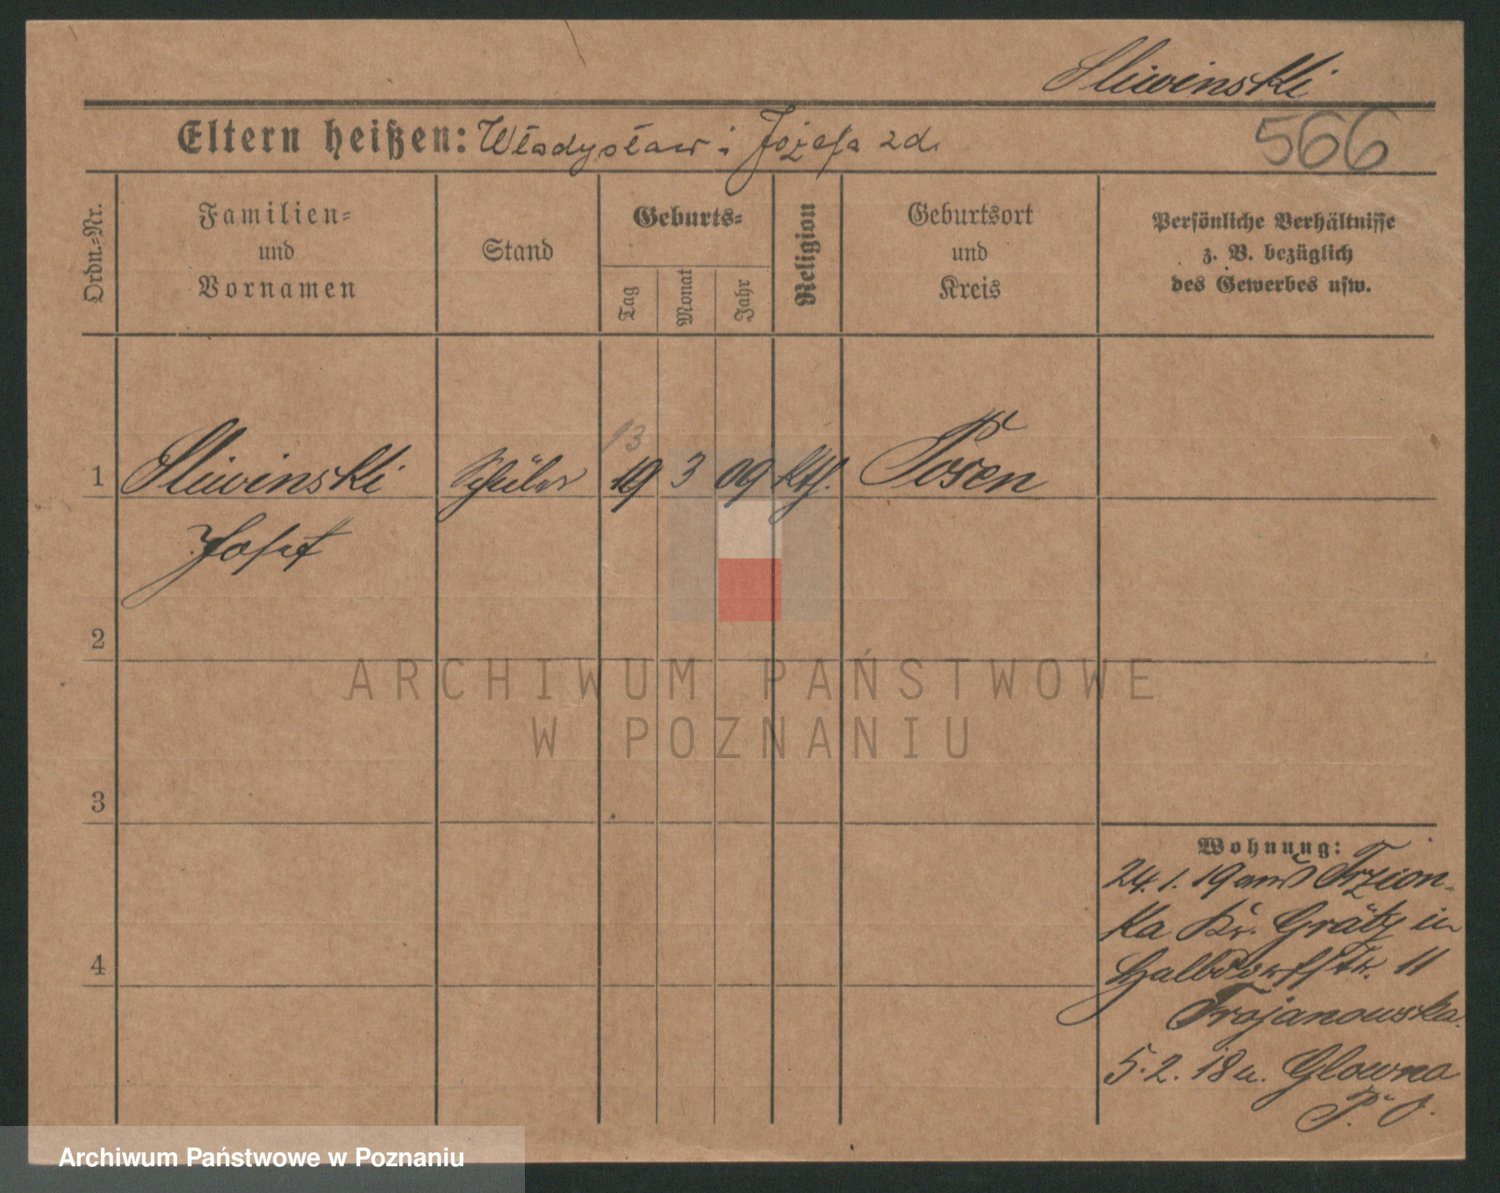 Sliwinski
Eltern heißen: Władysław i Józefa zd.
566
Ordn.=Nr.
Familien=
und
Vornamen
Stand
Geburts=
Tag
Monat
Jahr
Religion
Geburtsort
und
Kreis
Persönliche Verhältnisse
z. B. bezüglich
des Gewerbes usw.
13
1 Sliwinski Schüler 19 3 09 kth. Posen
Josef
2
3
4
Wohnung:
24. 1. 19 aus Trzion-
ka Kr. Grätz in
Halbdorfstr. 11
Trojanowska.
5. 2. 18 u. Glowno
P. O.
ARCHIWUM PAŃSTWOWE
W POZNANIU
Archiwum Państwowe w Poznaniu